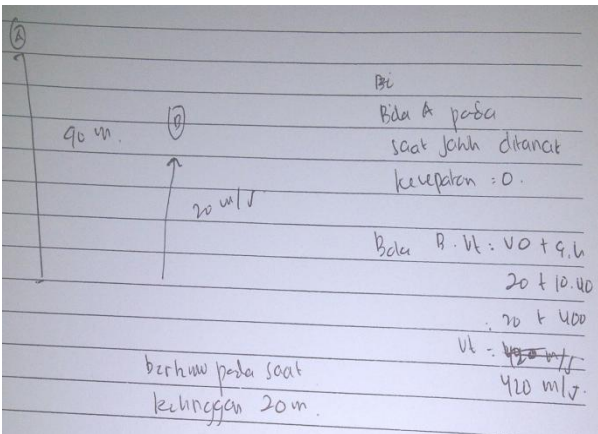 A
90 m.
B
20 m/s
Bi
Bila A pada
saat jatuh ditanah
kecepatan : 0.
Bola B. Vt : VO + g.h
20 + 10.40
: 20 + 400
Vt : 420 m/s
420 m/s.
bertemu pada saat
ketinggan 20 m.